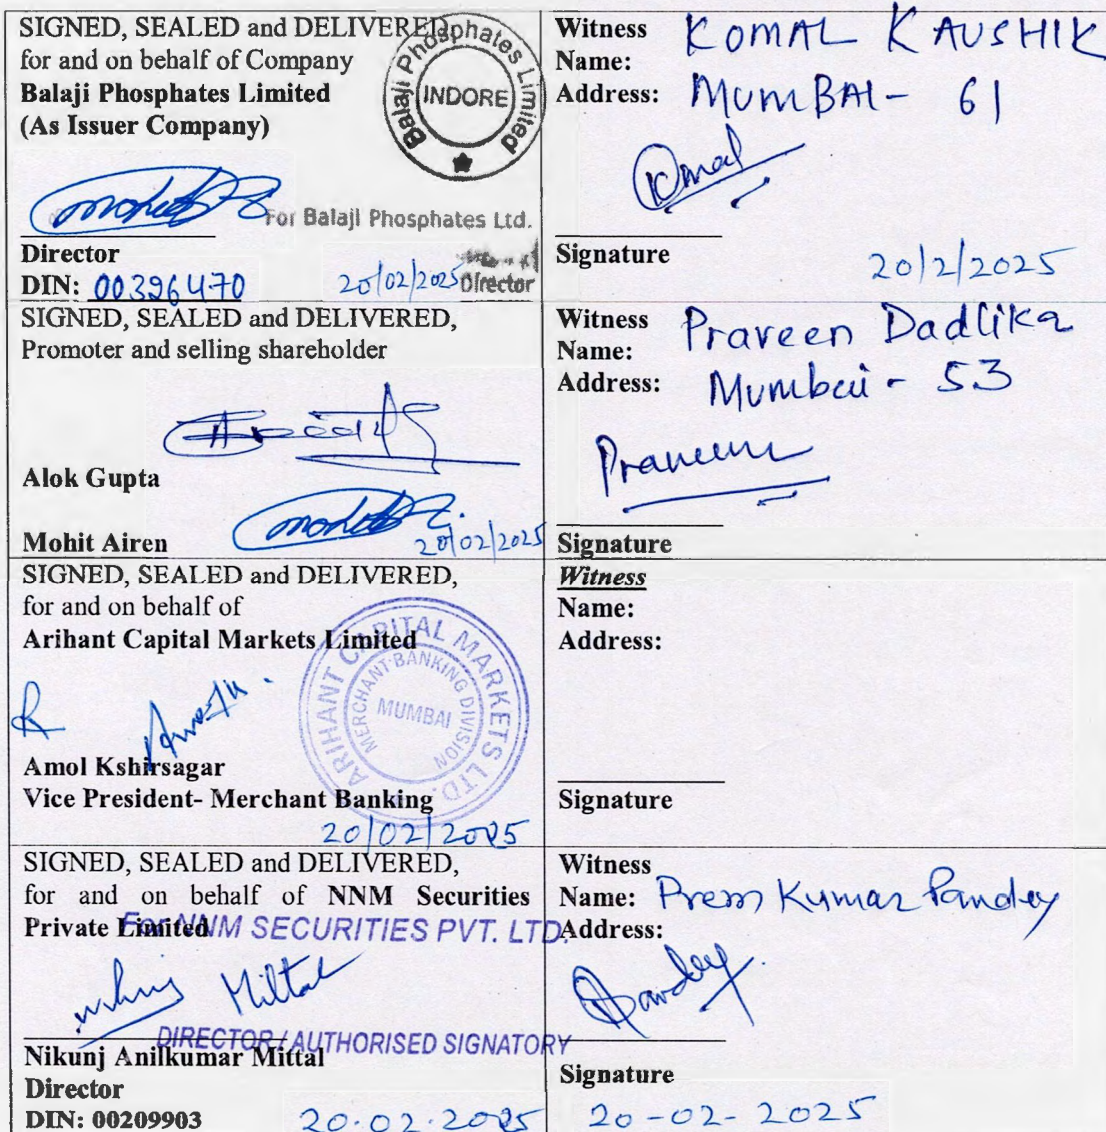 SIGNED, SEALED and DELIVERED
for and on behalf of Company
Balaji Phosphates Limited
(As Issuer Company)
Balaji Phosphates Limited
INDORE
For Balaji Phosphates Ltd.
Director
Director
DIN: 00396470
20/02/2025
Witness
Name: KOMAL KAUSHIK
Address: MUMBAI- 61
Komal
Signature
20/2/2025
SIGNED, SEALED and DELIVERED,
Promoter and selling shareholder
Alok Gupta
Mohit Airen
20/02/2025
Witness
Name: Praveen Dadlika
Address: Mumbai - 53
Praveen
Signature
SIGNED, SEALED and DELIVERED,
for and on behalf of
Arihant Capital Markets Limited
ARIHANT CAPITAL MARKETS LTD.
MERCHANT BANKING DIVISION
MUMBAI
Amol Kshirsagar
Vice President- Merchant Banking
20/02/2025
Witness
Name:
Address:
Signature
SIGNED, SEALED and DELIVERED,
for and on behalf of NNM Securities
Private Limited
For NNM SECURITIES PVT. LTD.
Mittal
DIRECTOR / AUTHORISED SIGNATORY
Nikunj Anilkumar Mittal
Director
DIN: 00209903
20.02.2025
Witness
Name: Prem Kumar Pandey
Address:
Pandey
Signature
20-02-2025